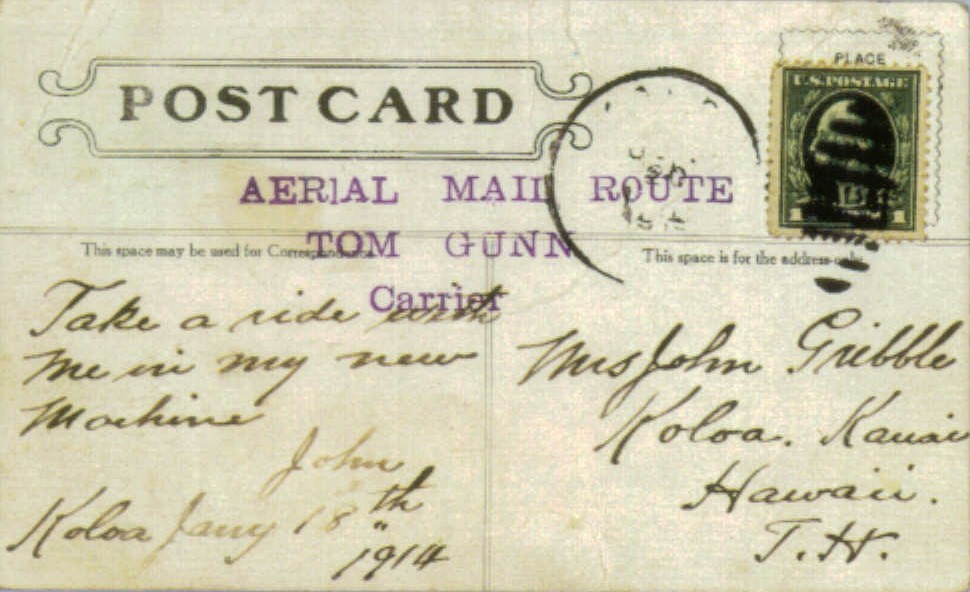 PLACE
U.S. POSTAGE
POST CARD
AERIAL MAIL ROUTE
TOM GUNN
Carrier
1 1
This space may be used for Correspondence
This space is for the address only.
Take a ride with
me in my new
Machine
John
Koloa Jany 18th
1914
Mrs John Gribble
Koloa. Kauai
Hawaii.
T.H.